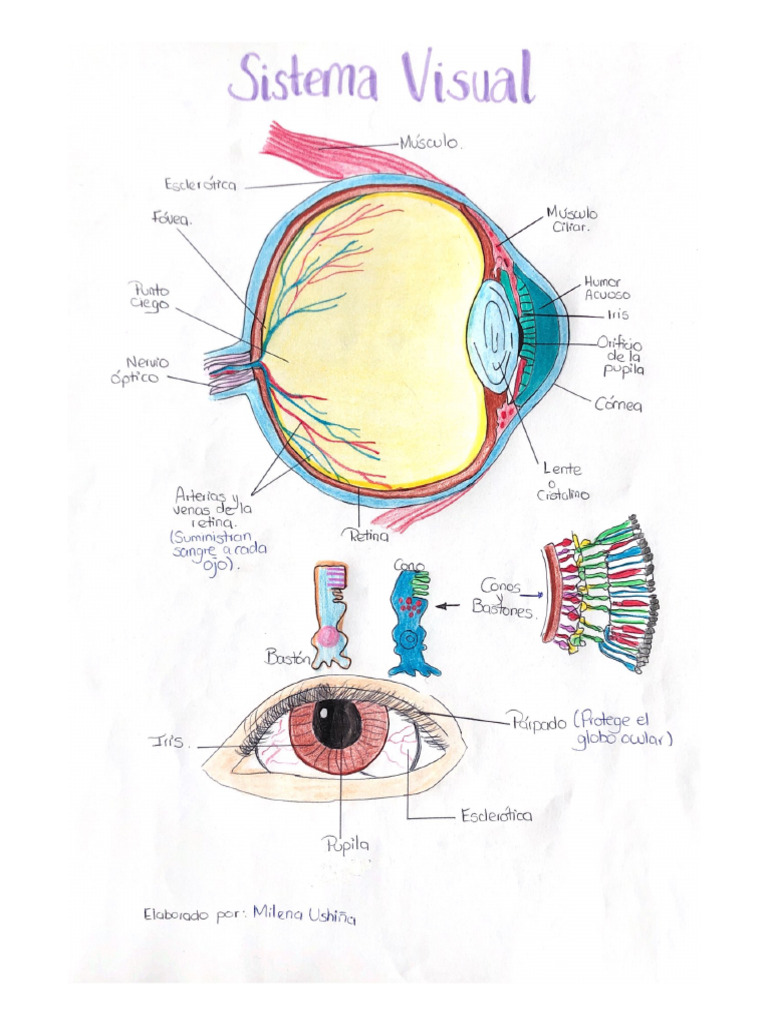 Sistema Visual
Músculo.
Esclerótica
Fóvea.
Músculo
Ciliar.
Punto
Ciego
Humor
Acuoso
Iris
Orificio
de la
pupila
Nervio
óptico
Córnea
Lente
o
Cristalino
Arterias y
venas de la
retina.
(Suministran
sangre a cada
ojo).
Retina
Cono
Conos
y
Bastones.
Bastón
Párpado (Protege el
globo ocular)
Iris.
Esclerótica
Pupila
Elaborado por: Milena Ushiña